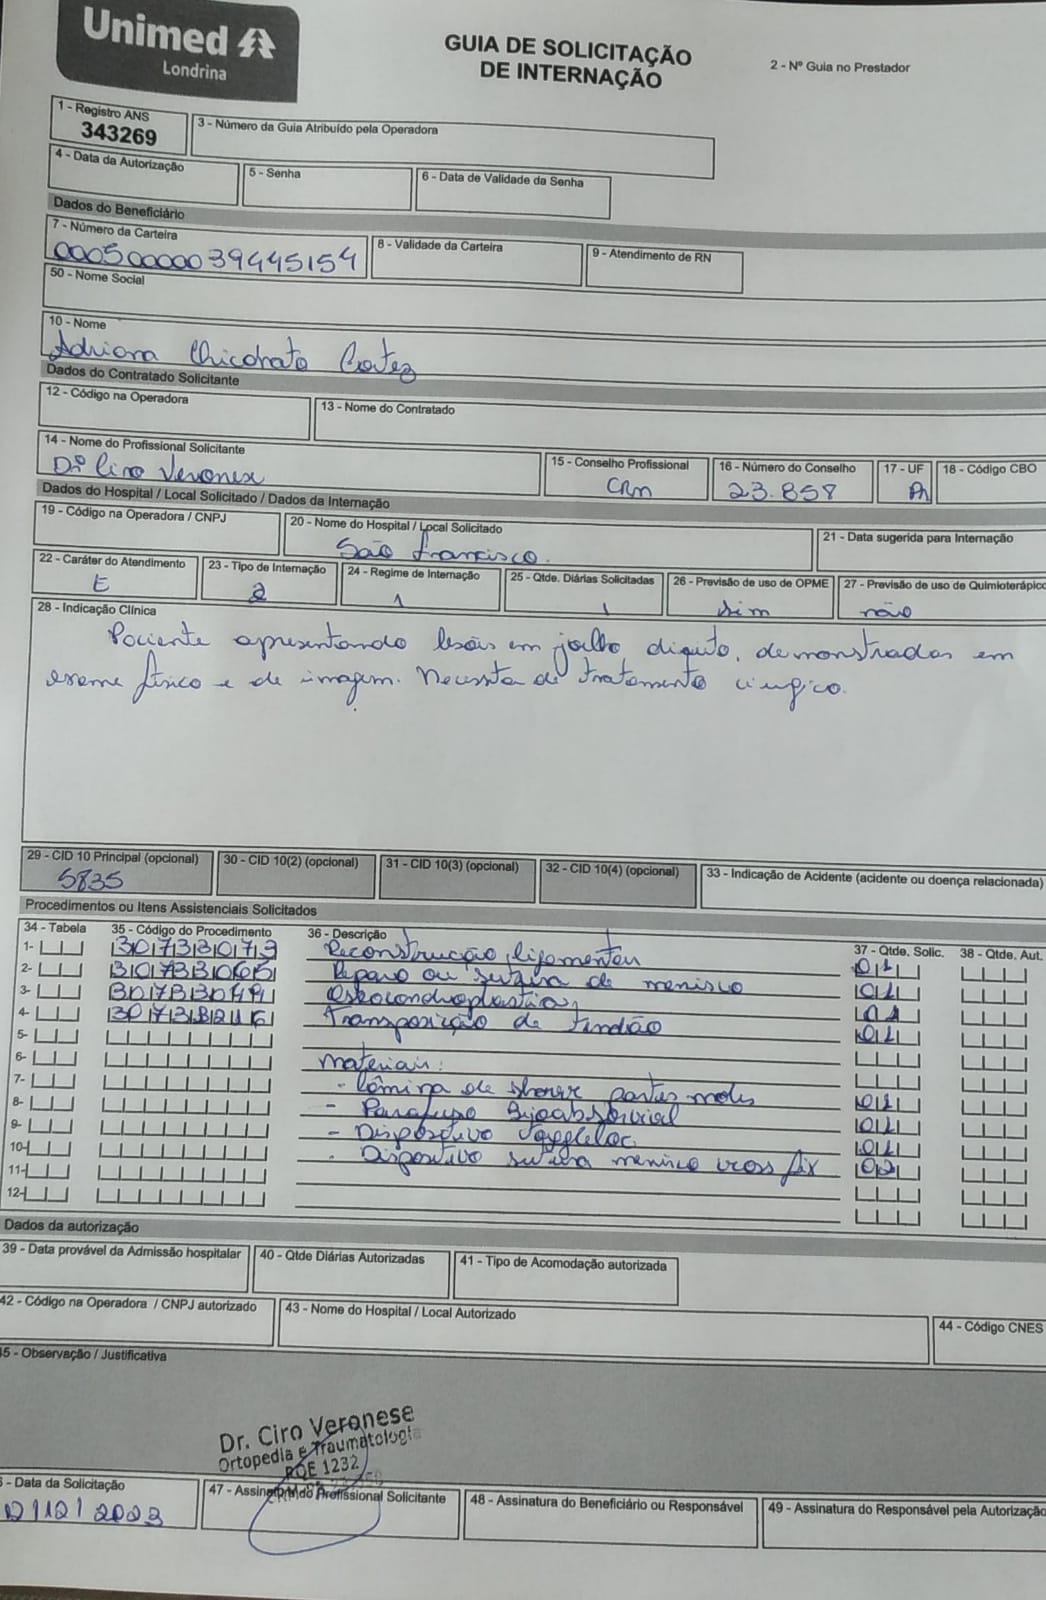 Unimed
Londrina
GUIA DE SOLICITAÇÃO
DE INTERNAÇÃO
2 - Nº Guia no Prestador
1 - Registro ANS
343269
3 - Número da Guia Atribuído pela Operadora
4 - Data da Autorização
5 - Senha
6 - Data de Validade da Senha
Dados do Beneficiário
7 - Número da Carteira
00050000039445154
8 - Validade da Carteira
9 - Atendimento de RN
50 - Nome Social
10 - Nome
Adriana Chicorato Cortez
Dados do Contratado Solicitante
12 - Código na Operadora
13 - Nome do Contratado
14 - Nome do Profissional Solicitante
Drº Ciro Veronese
15 - Conselho Profissional
CRM
16 - Número do Conselho
23.858
17 - UF
PR
18 - Código CBO
Dados do Hospital / Local Solicitado / Dados da Internação
19 - Código na Operadora / CNPJ
20 - Nome do Hospital / Local Solicitado
São Francisco.
21 - Data sugerida para Internação
22 - Caráter do Atendimento
E
23 - Tipo de Internação
2
24 - Regime de Internação
1
25 - Qtde. Diárias Solicitadas
1
26 - Previsão de uso de OPME
sim
27 - Previsão de uso de Quimioterápico
não
28 - Indicação Clínica
Paciente apresentando lesões em joelho direito, demonstradas em
exame físico e de imagem. Necessita de tratamento cirúrgico.
29 - CID 10 Principal (opcional)
S835
30 - CID 10(2) (opcional)
31 - CID 10(3) (opcional)
32 - CID 10(4) (opcional)
33 - Indicação de Acidente (acidente ou doença relacionada)
Procedimentos ou Itens Assistenciais Solicitados
34 - Tabela 35 - Código do Procedimento 36 - Descrição 37 - Qtde. Solic. 38 - Qtde. Aut.
1- Reconstrução ligamentar 01
2- Reparo ou sutura de menisco 01
3- Osteocondroplastia 01
4- Transposição de tendão 01
5-
6- Materiais:
7- - Lâmina de shaver partes moles 01
8- - Parafuso Bioabsorvível 01
9- - Dispositivo 01
10- - Dispositivo sutura menisco cross fix 02
11-
12-
Dados da autorização
39 - Data provável da Admissão hospitalar
40 - Qtde Diárias Autorizadas
41 - Tipo de Acomodação autorizada
42 - Código na Operadora / CNPJ autorizado
43 - Nome do Hospital / Local Autorizado
44 - Código CNES
45 - Observação / Justificativa
Dr. Ciro Veronese
Ortopedia e Traumatologia
RQE 1232
- Data da Solicitação
12/2023
47 - Assinatura do Profissional Solicitante
48 - Assinatura do Beneficiário ou Responsável
49 - Assinatura do Responsável pela Autorização